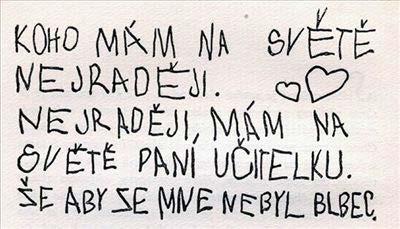 KOHO MÁM NA SVĚTĚ
NEJRADĚJI.
NEJRADĚJI, MÁM NA
SVĚTĚ PANÍ UČITELKU.
ŠE ABY SE MNE NEBYL BLBEC.